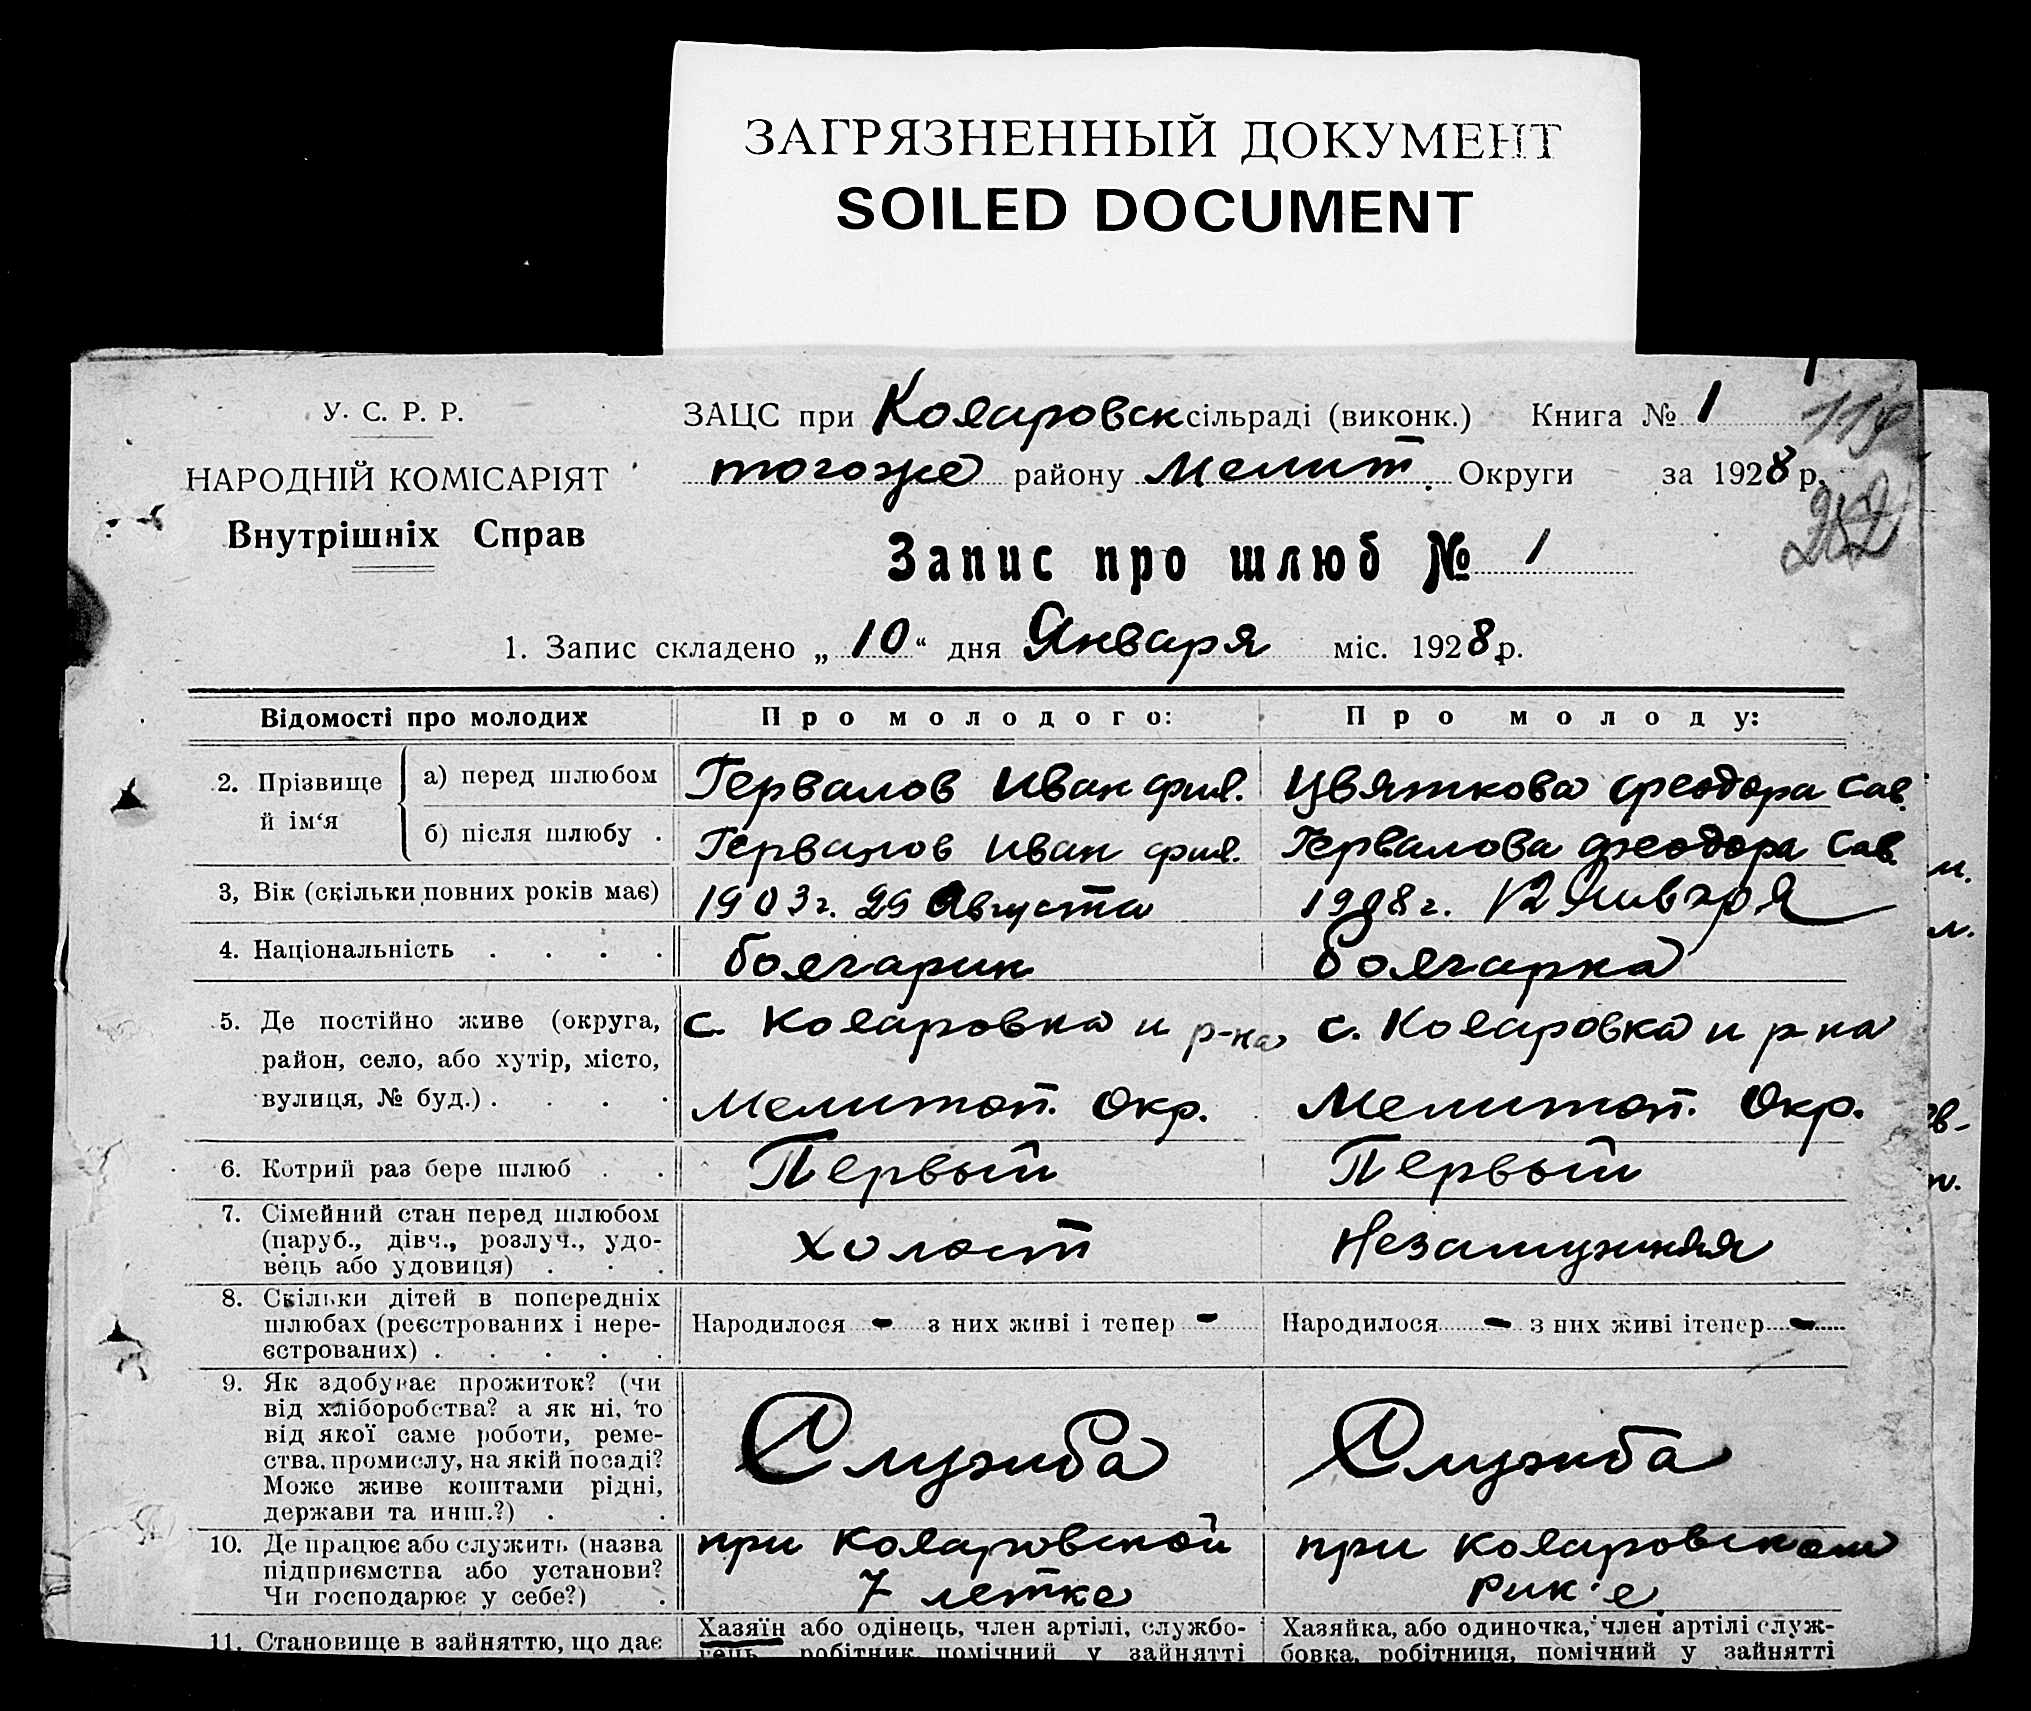 ЗАГРЯЗНЕННЫЙ ДОКУМЕНТ
SOILED DOCUMENT
У. С. Р. Р.
НАРОДНІЙ КОМІСАРІЯТ
Внутрішніх Справ
ЗАЦС при Коларовск сільраді (виконк.) Книга № 1
тогоже району Мелит. Округи за 1928 р.
119
252
Запис про шлюб № 1
1. Запис складено „ 10 “ дня Января міс. 1928 р.
Відомості про молодих
Про молодого:
Про молоду:
2. Прізвище й ім‘я
а) перед шлюбом
Гервалов Иван фил.
Цвяткова Феодора Сав.
б) після шлюбу .
Гервалов Иван фил.
Гервалова Феодора Сав.
3, Вік (скільки повних років має)
1903 г. 29 Августа
1908 г. 12 Января
4. Національність . . . .
болгарин
болгарка
5. Де постійно живе (округа,
район, село, або хутір, місто,
вулиця, № буд.) . . . .
с. Коларовка и р-на
Мелитоп. Окр.
с. Коларовка и р-на
Мелитоп. Окр.
6. Котрий раз бере шлюб . .
Первый
Первый
7. Сімейний стан перед шлюбом
(паруб., дівч., розлуч., удо-
вець або удовиця) . . .
холост
Незамужняя
8. Скільки дітей в попередніх
шлюбах (реєстрованих і нере-
єстрованих) . . . . .
Народилося - з них живі і тепер -
Народилося - з них живі ітепер -
9. Як здобуває прожиток? (чи
від хліборобства? а як ні, то
від якої саме роботи, реме-
ства, промислу, на якій посаді?
Може живе коштами рідні,
держави та инш.?) . .
Служба
Служба
10. Де працює або служить (назва
підприємства або установи?
Чи господарює у себе?) .
при Коларовской
7 летке
при Коларовском
Рик'е
11. Становище в зайняттю, що дає
Хазяїн або одінець, член артілі, службо-
вець, робітник, помічний у зайнятті
Хазяйка, або одиночка, член артілі служ-
бовка, робітниця, помічний у зайнятті